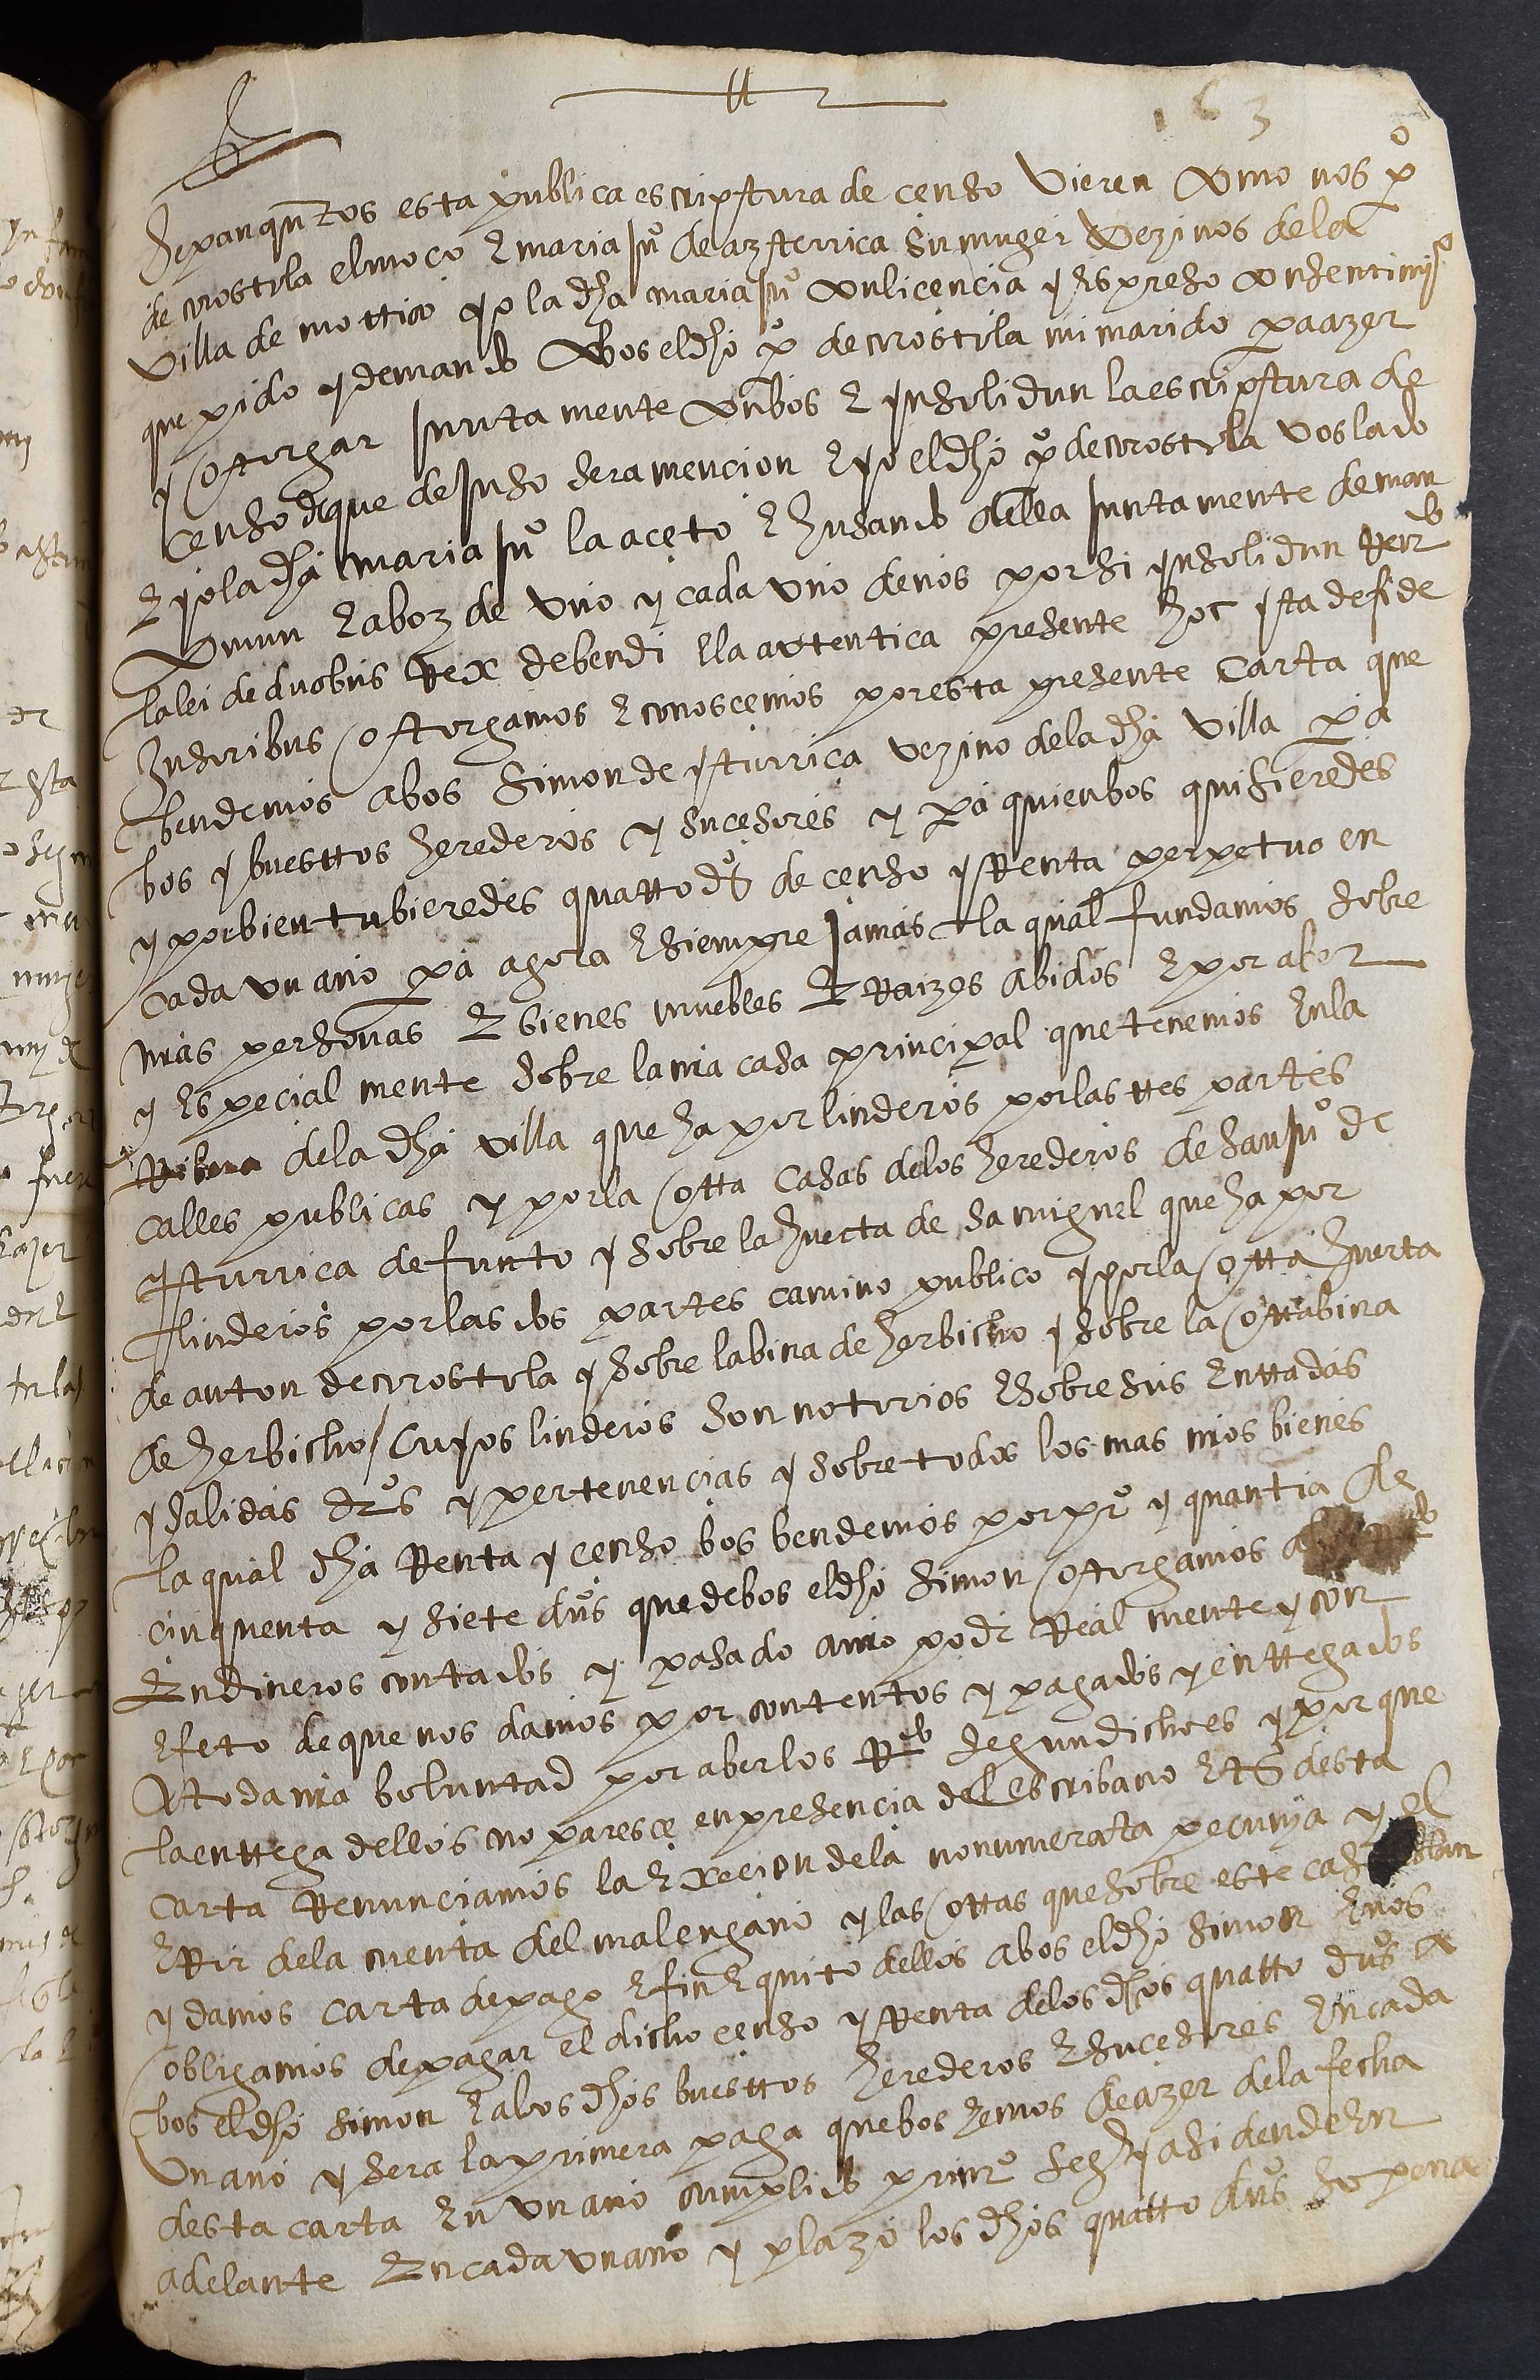 163
Sepan quantos esta publica escriptura de censo vieren como nos po
de crostila el moço E maria juo de azterrica su muger vezinos de la
villa de motrico yo la dha maria juo con licencia y espreso consentimyo
que pido y demando a bos el dho po de crostila mi marido para azer
y otorgar juntamente con bos E ynsolidun la escriptura de
censo de que de juso sera mencion E yo el dho po de crostila vos la do
E yo la dha maria juo la aceto E husando della juntamente de man
comun E a boz de uno y cada uno de nos por si ynsolidun Rendo
la lei de duobus Rex debendi E la autentica presente hoc yta de fide
Jusoribus otorgamos E conoscemos por esta presente carta que
bendemos a bos Simon de yturriça vezino de la dha villa pa
bos y buestros herederos y sucesores y pa quien bos quisieredes
y por bien tubieredes quatro dos de censo y Renta perpetuo en
cada un ano pa agora E siempre jamas la qual fundamos sobre
nras personas E bienes muebles E Raizes abidos E por aber
y especial mente sobre la nra casa principal que tenemos En la
Ribera de la dha villa que ha por linderos por las tres partes
calles publicas y por la otra casas de los herederos de san juo de
yturrica defunto y sobre la huerta de sa miguel que ha por
linderos por las dos partes camino publico y por la otra huerta
de anton de crostila y sobre la bina de herbicho y sobre la otra bina
de herbicho / cuyos linderos son notorios E sobre sus Entradas
y salidas dros y pertenencias y sobre todos los mas nros bienes
la qual dha Renta y censo bos bendemos por pro y quantia de
cinquenta y siete dos que de bos el dho Simon otorgamos
En dineros contados y pasado a nro poder Real mente y con
Efeto de que nos damos por contentos y pagados y entregados
A toda nra boluntad por aberlos Rdo segun dicho es y porque
la entrega dellos no paresce en presencia del escribano E ts desta
carta Renunciamos la Execion de la nonumerata pecunya y el
ERor de la cuenta del mal engano y las otras que sobre este caso ablan
y damos carta de pago E fin E quito dellos a bos el dho Simon E nos
obligamos de pagar el dicho censo y Renta de los dhos quatro dos a
bos el dho Simon E a los dhos buestros herederos E sucesores En cada
un ano y sera la primera paga que bos hemos de azer de la fecha
desta carta En un ano cumplido primro sege y asi dende En
adelante En cada un ano y plazo los dhos quatro dos so pena